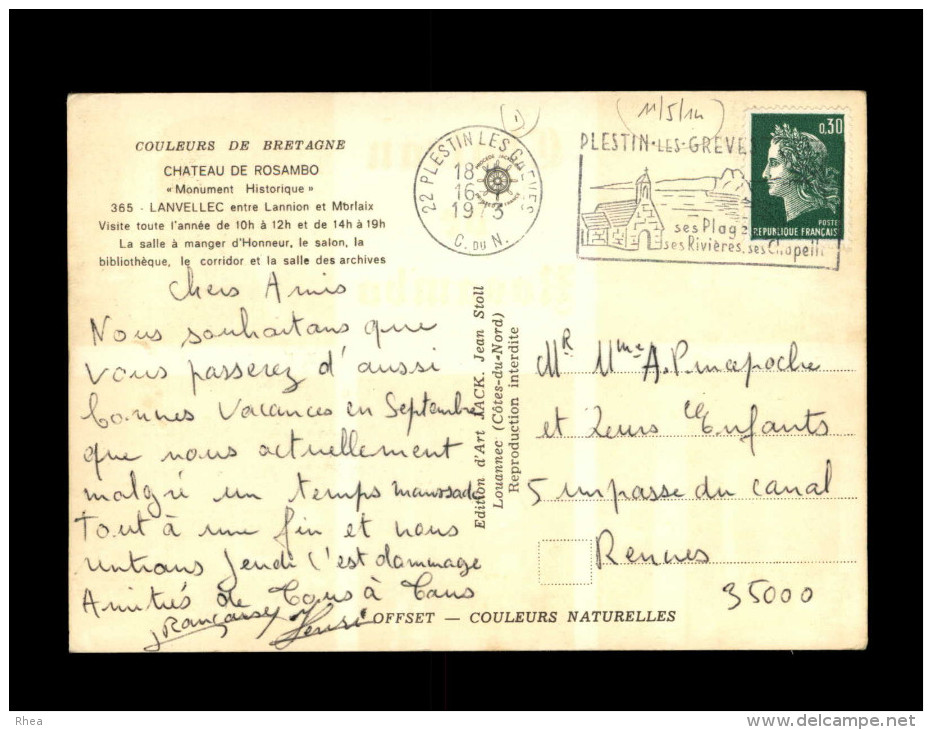 COULEURS DE BRETAGNE
CHATEAU DE ROSAMBO
« Monument Historique »
365 - LANVELLEC entre Lannion et Morlaix
Visite toute l'année de 10h à 12h et de 14h à 19h
La salle à manger d'Honneur, le salon, la
bibliothèque, le corridor et la salle des archives
Chers Amis
Nous souhaitons que
vous passerez d'aussi
bonnes vacances en Septembre
que nous actuellement
malgré un temps maussade
Tout à une fin et nous
rentrons Jeudi c'est dommage
Amitiés de Tous à Tous
Françoise Henri
22 PLESTIN LES GREVES
18H
16-
1973
C. DU N.
(1)
(11/5/14)
PLESTIN-LES-GREVES
ses Plage
ses Rivières, ses Chapell
0,30
POSTES
REPUBLIQUE FRANÇAISE
Edition d'Art JACK. Jean Stoll
Louannec (Côtes-du-Nord)
Reproduction interdite
Mr Mme A.
et Leurs Enfants
5 impasse du canal
Rennes
35000
OFFSET — COULEURS NATURELLES
Rhea
www.delcampe.net